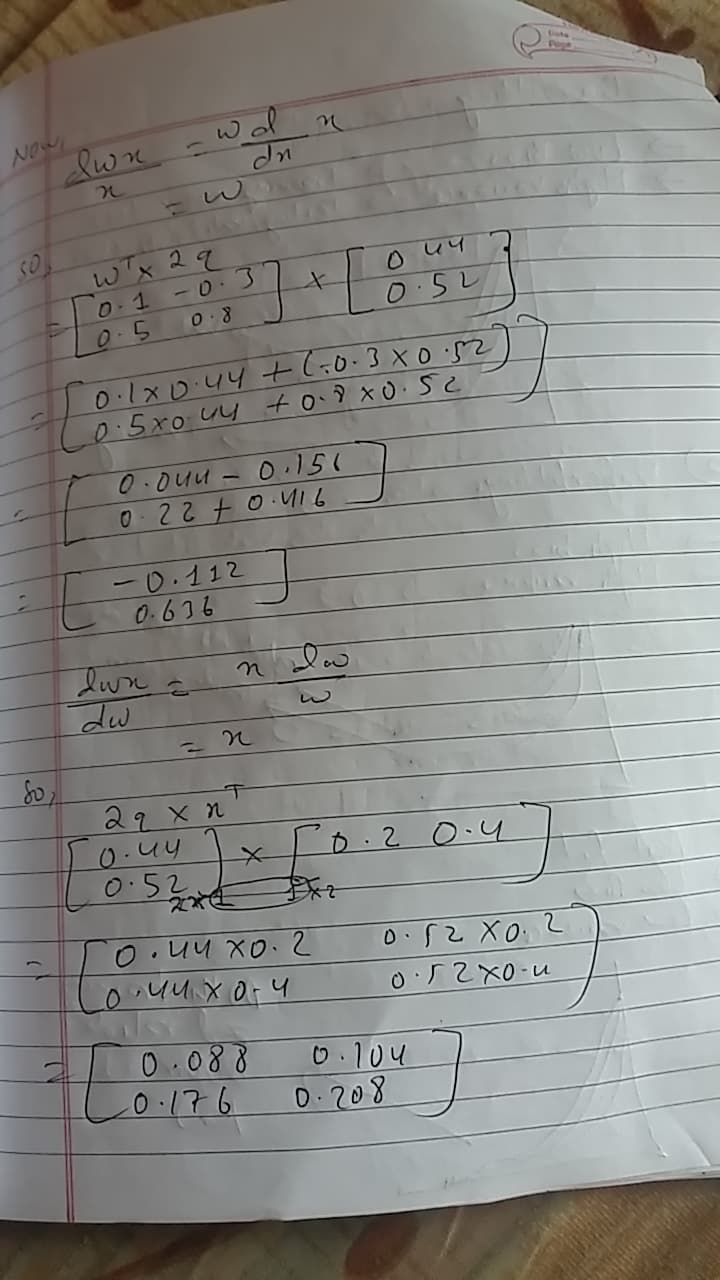 Date
Page
Now,
dwx/x = w d/dx x
= w
so,
w^T × 2q
= [0.1 -0.3] × [0.44]
[0.5 0.8] [0.52]
= [0.1×0.44 + (-0.3×0.52)]
[0.5×0.44 + 0.8×0.52]
= [0.044 - 0.156]
[0.22 + 0.416]
= [-0.112]
[0.636]
dwx/dw = x dw/w
= x
So,
2q × x^T
[0.44] × [0.2 0.4]
[0.52] 2×1 1×2
= [0.44×0.2 0.52×0.2]
[0.44×0.4 0.52×0.4]
= [0.088 0.104]
[0.176 0.208]